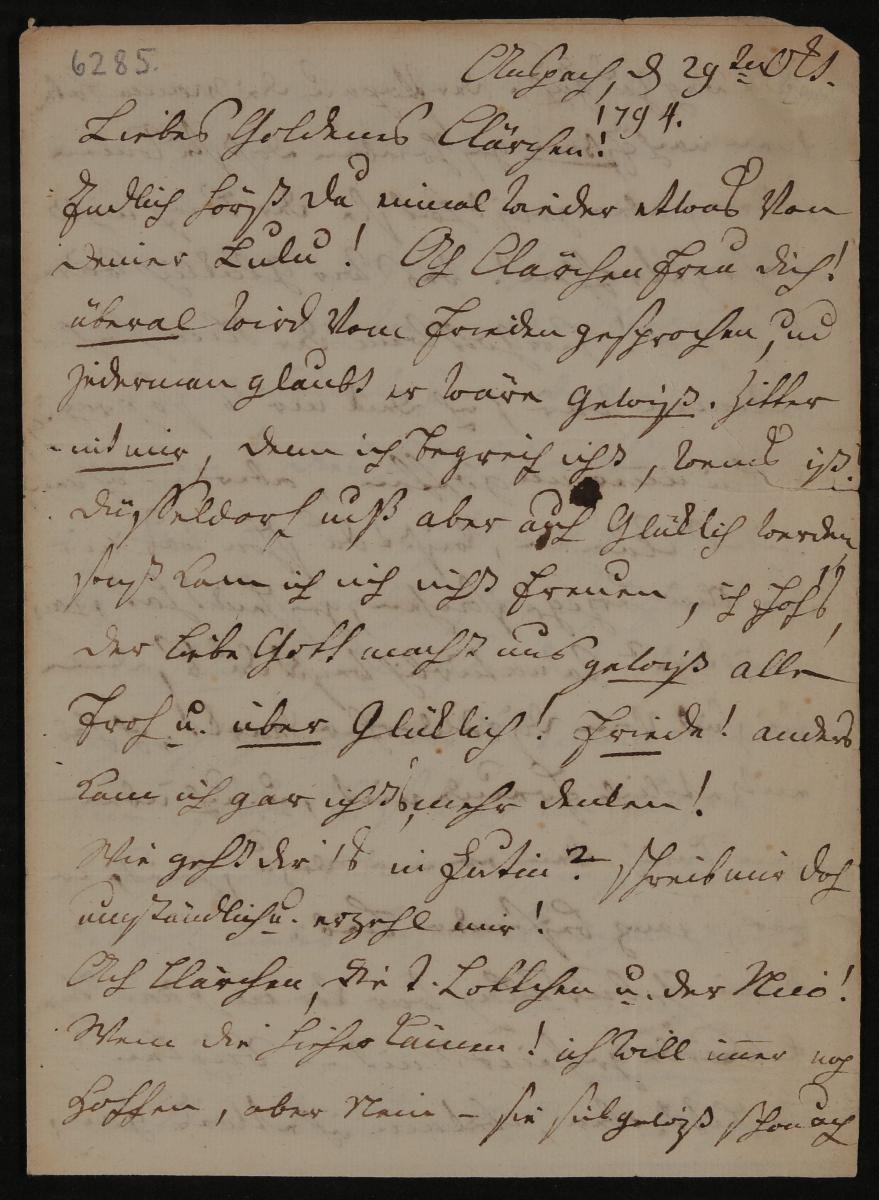 6285.
Anspach, d 29ten Okt.
1794.
Liebes Goldenes Clärchen!
Endlich hörst du einmal wieder etwas von
deiner Lulu! Ach Clärchen freu dich!
überal wird vom Frieden gesprochen, und
jederman glaubt er wäre gewiß. Zitter
mit mir, denn ich begreif nichts, wenns ist.
Düsseldorf muß aber auch Glüklich werden
sonst kann ich mich nicht freuen, ich hofs,
der liebe Gott macht uns gewiß alle
Froh u. über Glüklich! Friede! anders
kann ich gar nichts mehr denken!
Wie geht dir's in Eutin? schreib mir doch
umständlich u. erzehl mir!
Ach Clärchen, die T. Lottchen u. der
Wenn die hieher kämen! ich will immer noch
hoffen, aber Nein – sie sind gewiß schon auch